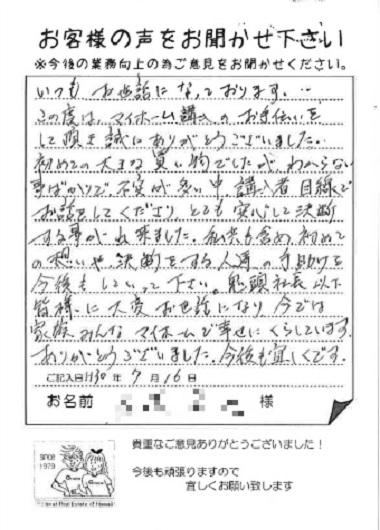 お客様の声をお聞かせ下さい
※今後の業務向上の為ご意見をお聞かせください。
いつも お世話になっております。
この度は、マイホーム購入の お手伝いを
して頂き誠にありがとうございました。
初めての大きな買い物でしたが、わからない
事ばかりで、不安が多い中 購入者目線で
お話をしてくださり、とても安心して決断
する事が出来ました。私共も含め、初めて
の想いや、決断をする人達の手助けを
今後もしていって下さい。社長以下
皆様に大変お世話になり、今では
家族みんなマイホームで幸せにくらしています。
ありがとうございました。今後も宜しくです。
ご記入日H30年 7月16日
お名前 様
SINCE
1979
貴重なご意見ありがとうございました！
今後も頑張りますので
宜しくお願い致します